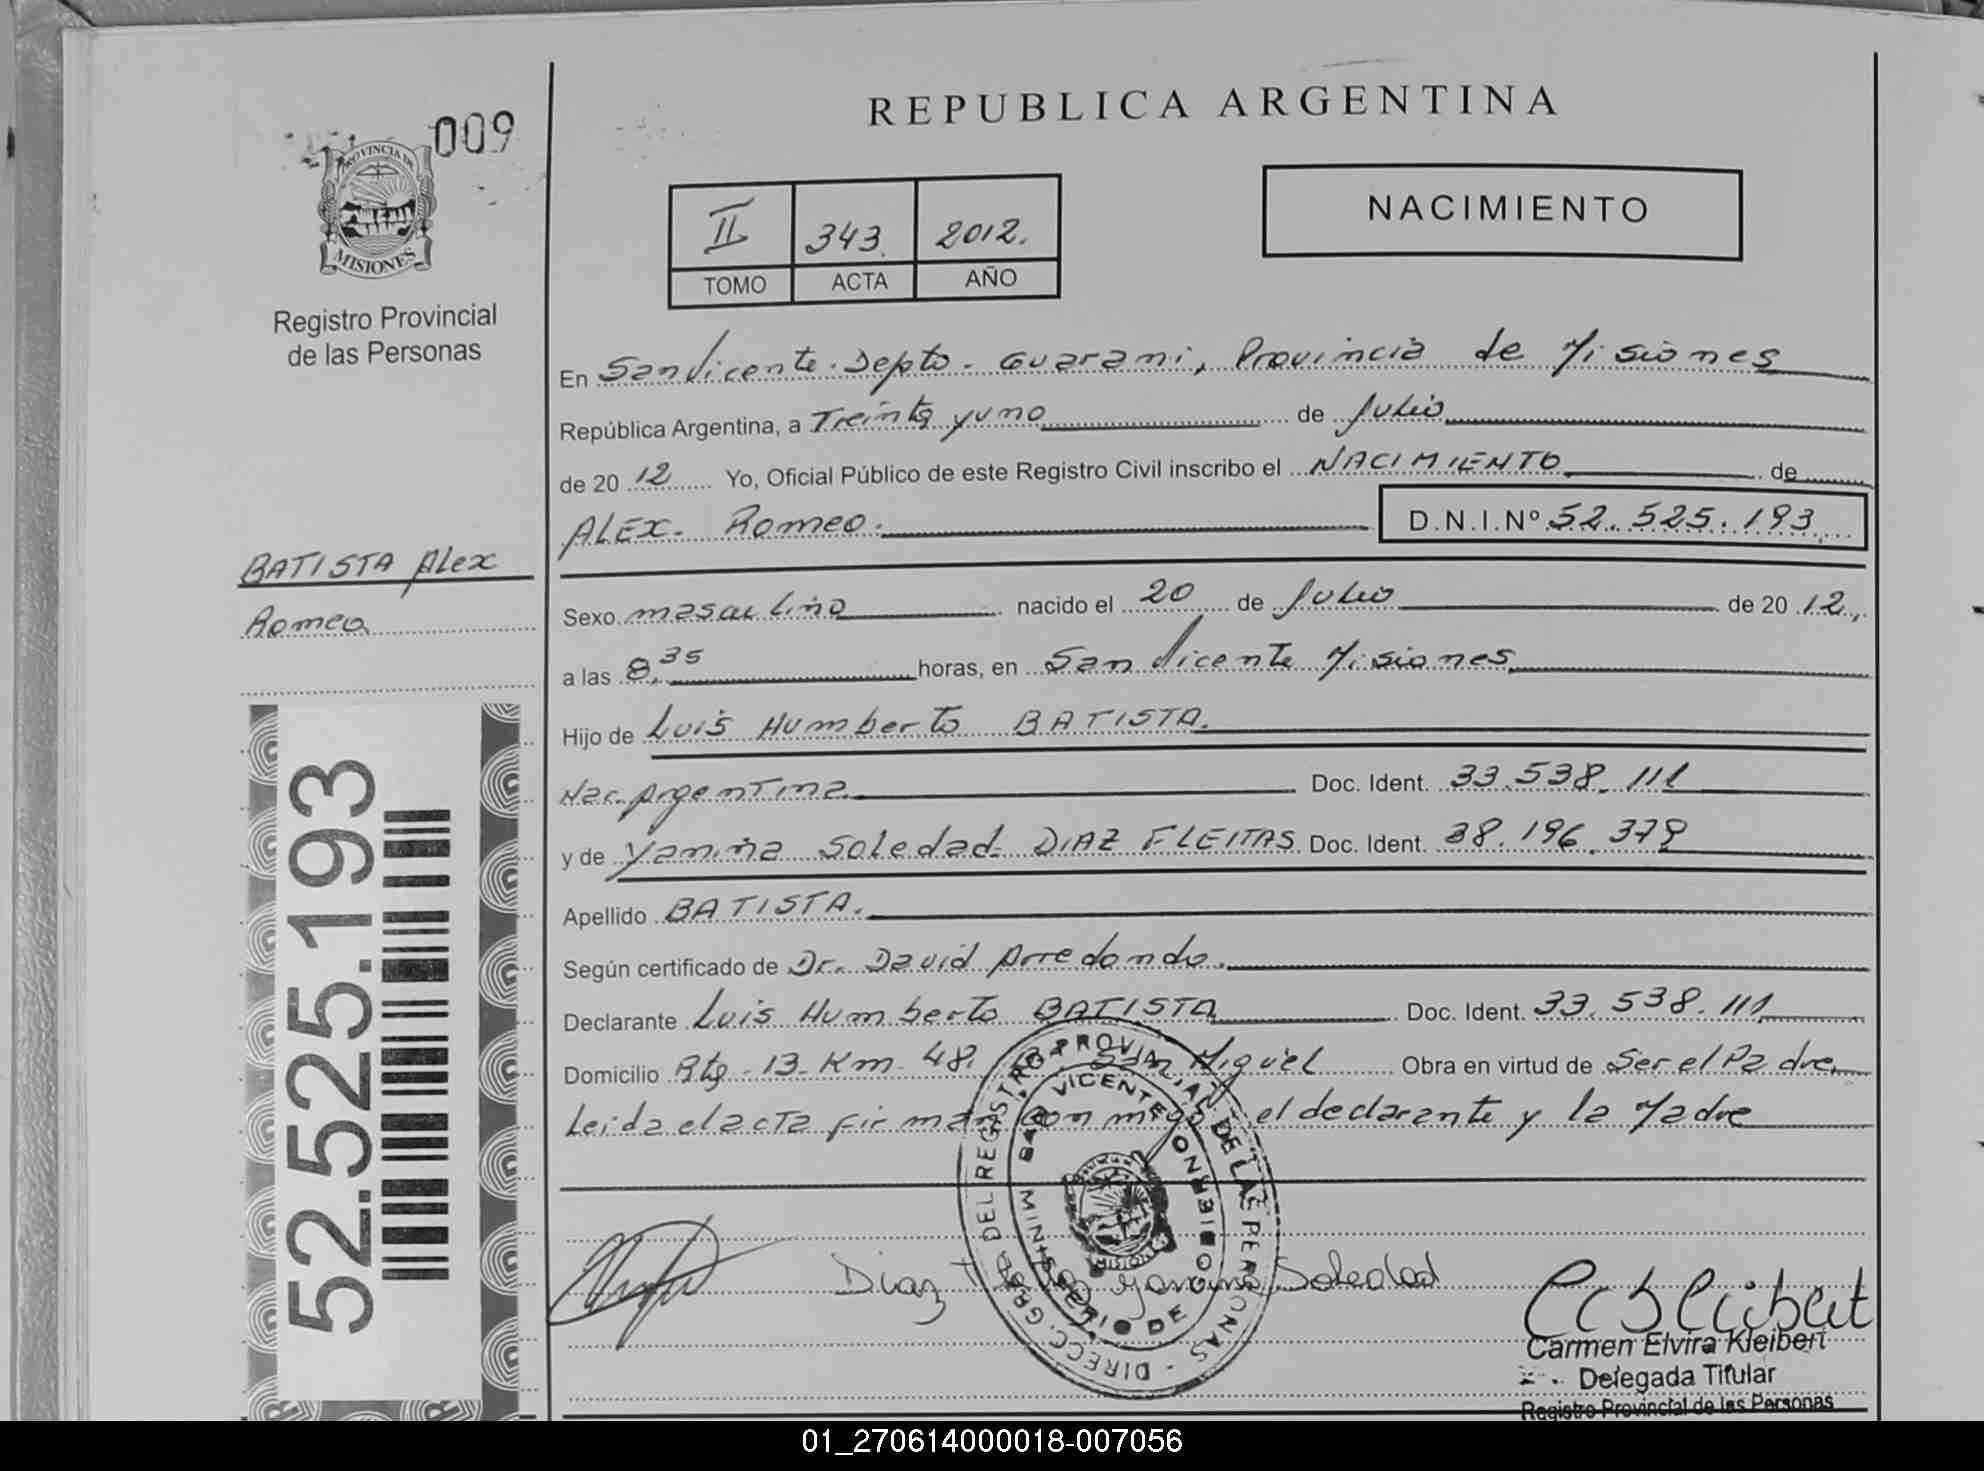 009
PROVINCIA DE
MISIONES
Registro Provincial
de las Personas
BATISTA Alex
Romeo
52.525.193
REPUBLICA ARGENTINA
II 343. 2012.
TOMO ACTA AÑO
NACIMIENTO
En San Vicente. Depto. Guarani, Provincia de Misiones
República Argentina, a Treinta y uno de Julio
de 20 12 Yo, Oficial Público de este Registro Civil inscribo el NACIMIENTO de
ALEX. Romeo. D.N.I.Nº 52.525.193
Sexo masculino nacido el 20 de Julio de 20 12,
a las 8,35 horas, en San Vicente Misiones
Hijo de Luis Humberto BATISTA.
Nac. Argentina Doc. Ident. 33.538.111
y de Yanina Soledad DIAZ FLEITAS Doc. Ident. 38.196.379
Apellido BATISTA.
Según certificado de Dr. David Arredondo.
Declarante Luis Humberto BATISTA Doc. Ident. 33.538.111
Domicilio Rta. 13. Km. 48. San Miguel Obra en virtud de Ser el Padre,
Leida el acta firman conmigo el declarante y la Madre
DIRECC. GRAL. DEL REGISTRO PROVINCIAL DE LAS PERSONAS
MINISTERIO DE GOBIERNO
SAN VICENTE
MISIONES
Diaz Yanina Soledad
Carmen Elvira Kleibert
Delegada Titular
Registro Provincial de las Personas
01_270614000018-007056